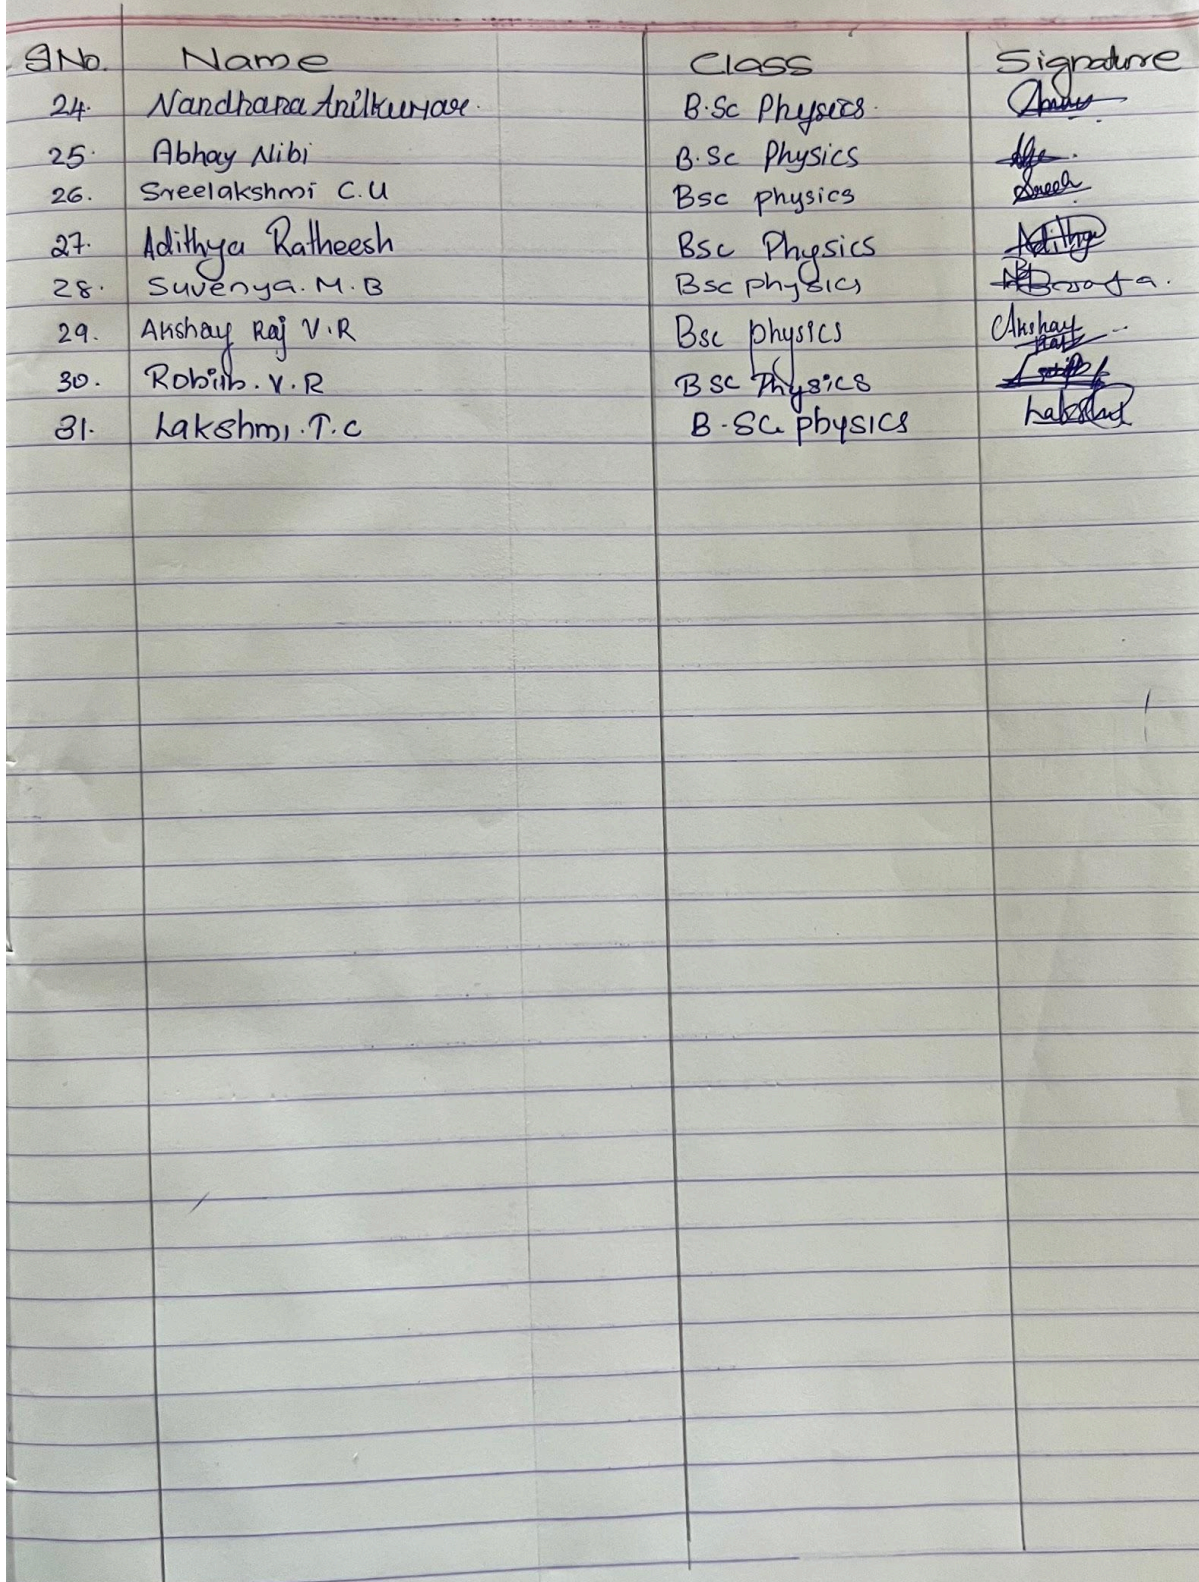 S No. Name Class Signature
24. Nandhana Anilkumar. B.Sc Physics.
25. Abhay Nibi B.Sc Physics
26. Sreelakshmi C.U Bsc physics Sree
27. Adithya Ratheesh Bsc Physics Adithya
28. Suvenya. M. B Bsc physics
29. Akshay Raj V.R Bsc physics Akshay Raj
30. V.R BSC Physics
31. Lakshmi. T. C B.Sc physics Lakshmi